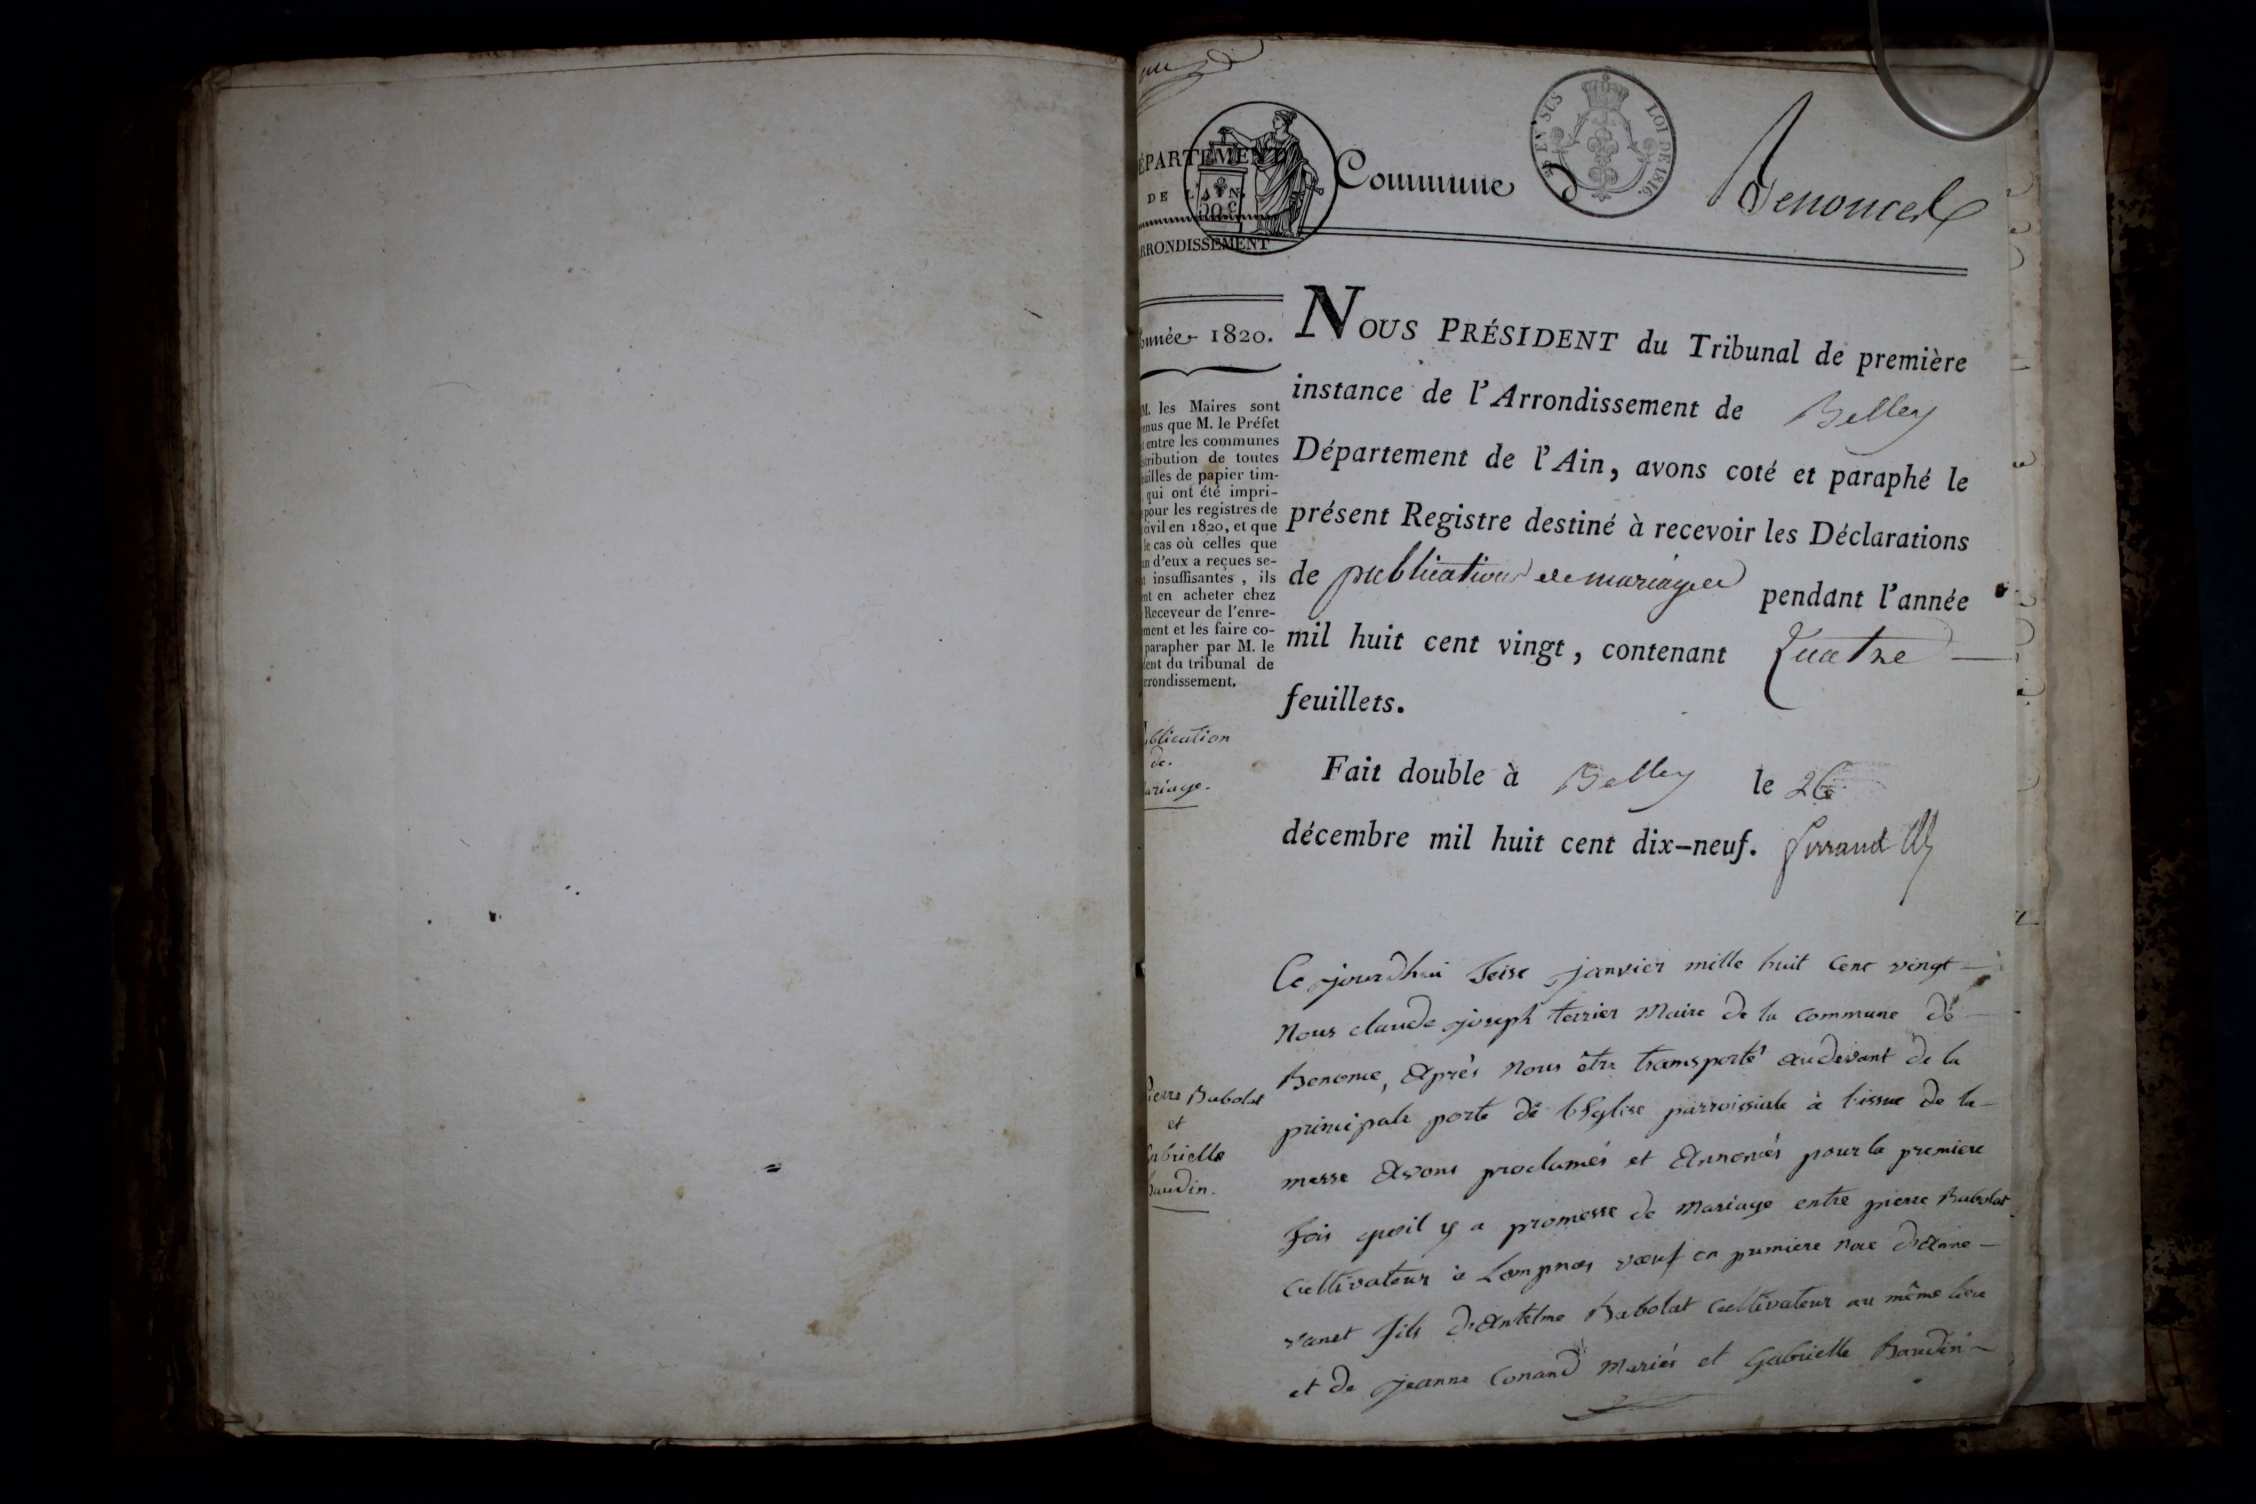 ÉPARTEMENT
DE L'AIN.
RRONDISSEMENT
Commune d
EN SUS LOI DE 1816.
Benonces
nnée 1820.
M. les Maires sont
enus que M. le Préfet
entre les communes
stribution de toutes
uilles de papier tim-
qui ont été impri-
pour les registres de
civil en 1820, et que
le cas où celles que
un d'eux a reçues se-
t insuffisantes, ils
nt en acheter chez
Receveur de l'enre-
ment et les faire co-
parapher par M. le
dent du tribunal de
rrondissement.
NOUS PRÉSIDENT du Tribunal de première
instance de l'Arrondissement de Belley
Département de l'Ain, avons coté et paraphé le
présent Registre destiné à recevoir les Déclarations
de publications de mariages pendant l'année
mil huit cent vingt, contenant Quatre
feuillets.
Fait double à Belley le 26
décembre mil huit cent dix-neuf. Ferrand
ublication
de
ariage.
Ce jourdhui seise janvier mille huit cent vingt
Nous claude joseph terrier Maire de la commune de
Benonce, Après Nous être transporté audevant de la
principale porte de l'Eglise parroissiale à l'issue de la
messe Avons proclamés et Annoncés pour la premiere
fois qu'il y a promesse de Mariage entre pierre Babolat
cultivateur à Lompnas vœuf en premiere noce d'Anne
vanet fils d'Antelme Babolat cultivateur au même lieu
et de jeanne Conand Mariés et Gabrielle Baudin
ierre Babolat
et
abrielle
baudin.